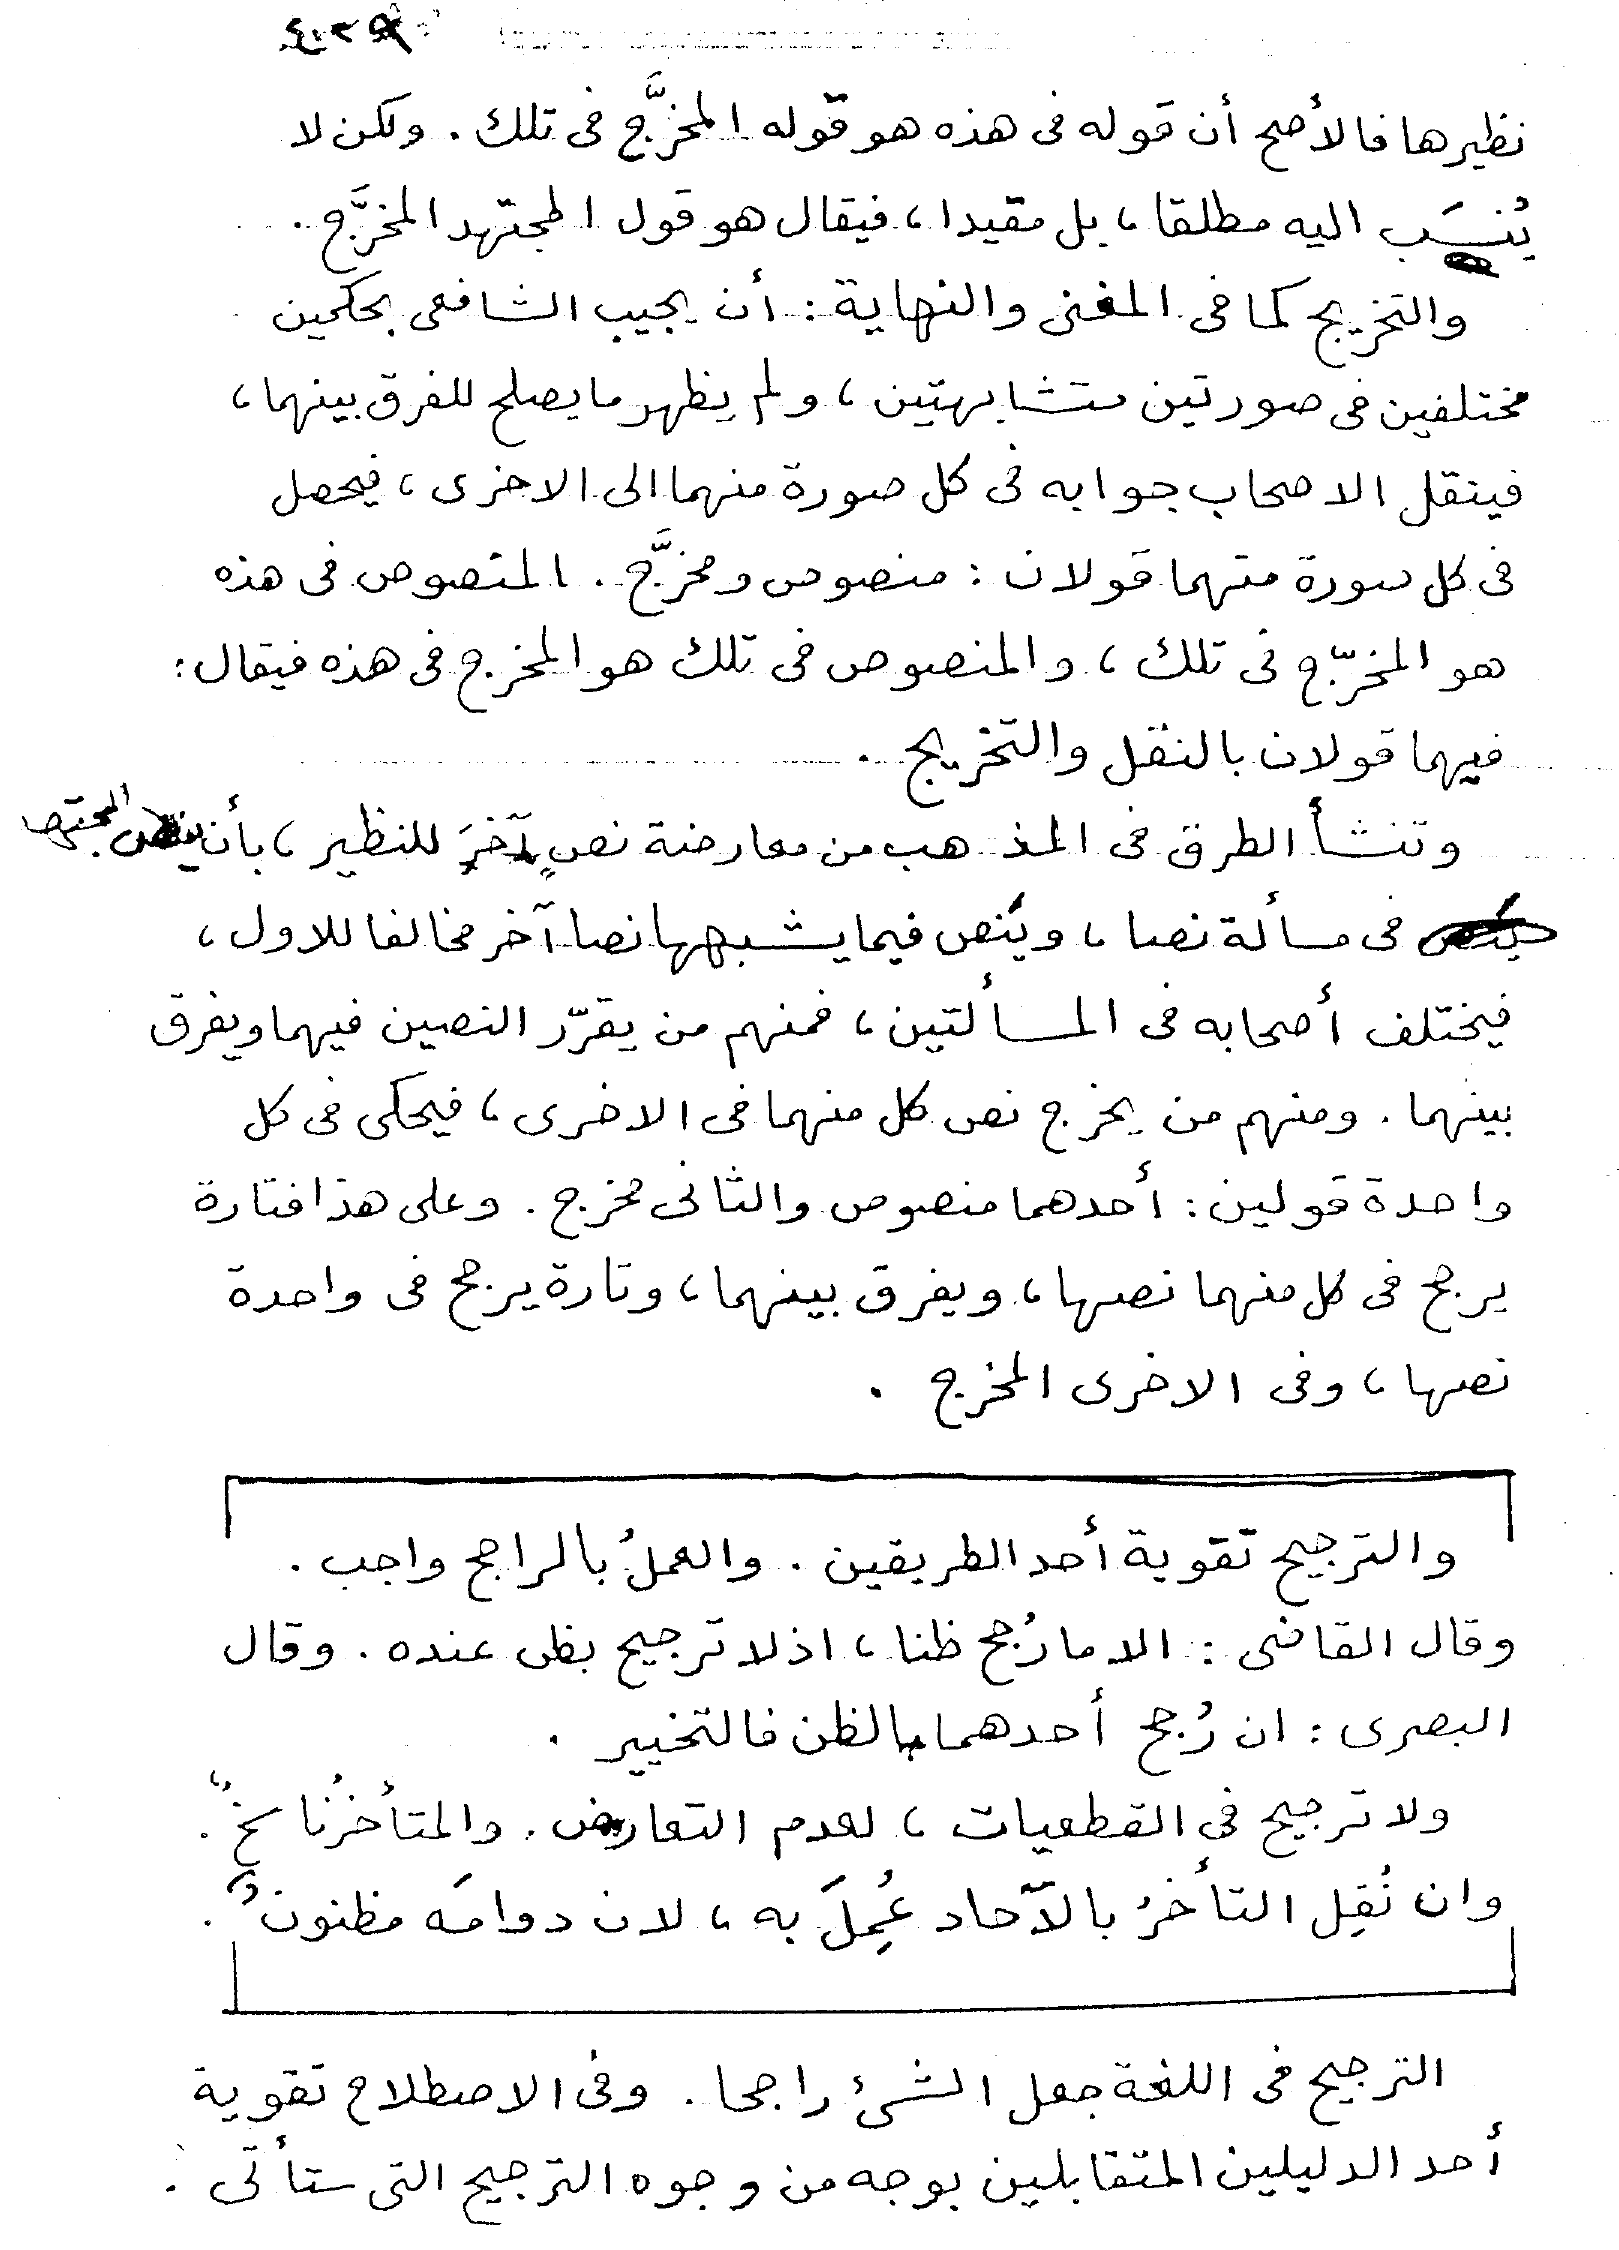 نظيرها فالأصح أن قوله فى هذه هو قوله المخرَّج فى تلك . ولكن لا
يُنسَب اليه مطلقا ، بل مقيدا ، فيقال هو قول المجتهد المخرَّج .
والتخريج كما فى المغنى والنهاية : أن يجيب الشافعى بحكمين
مختلفين فى صورتين متشابهتين ، ولم يظهر ما يصلح للفرق بينهما ،
فينقل الاصحاب جوابه فى كل صورة منهما الى الاخرى ، فيحصل
فى كل صورة منهما قولان : منصوص ومخرَّج . المنصوص فى هذه
هو المخرّج فى تلك ، والمنصوص فى تلك هو المخرج فى هذه فيقال :
فيهما قولان بالنقل والتخريج .
وتنشأ الطرق فى المذهب من معارضة نصٍ آخرَ للنظير ، بأن ينص المجتهد
فى مسألة نصا ، وينص فيما يشبهها نصا آخر مخالفا للاول ،
فيختلف أصحابه فى المسألتين ، فمنهم من يقرّر النصين فيهما ويفرق
بينهما . ومنهم من يخرج نص كل منهما فى الاخرى ، فيحكى فى كل
واحدة قولين : أحدهما منصوص والثانى مخرج . وعلى هذا فتارة
يرجح فى كل منهما نصها ، ويفرق بينهما ، وتارة يرجح فى واحدة
نصها ، وفى الاخرى المخرج .
والترجيح تقوية أحد الطريقين . والعملُ بالراجح واجب .
وقال القاضى : الا ما رُجح ظنا ، اذ لا ترجيح بظن عنده . وقال
البصرى : ان رُجح أحدهما بالظن فالتخيير .
ولا ترجيح فى القطعيات ، لعدم التعارض . والمتأخرُ ناسخٌ .
وان نُقِل التأخرُ بالآحاد عُمِلَ به ، لان دوامَه مظنونٌ .
الترجيح فى اللغة جعل الشئ راجحا . وفى الاصطلاح تقوية
أحد الدليلين المتقابلين بوجه من وجوه الترجيح التى ستأتى .